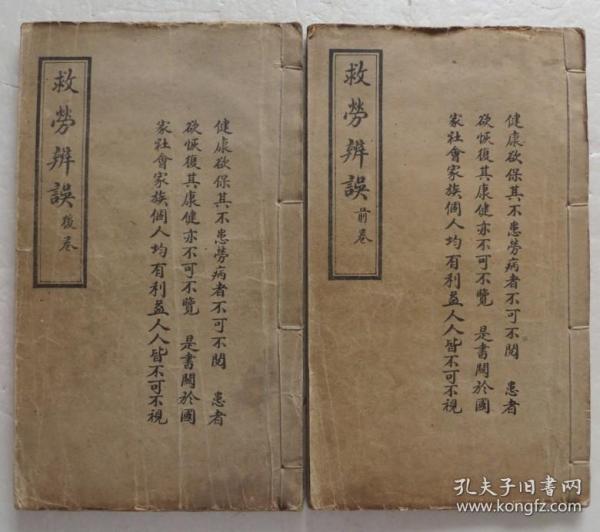 救勞辨誤 前卷
健康欲保其不患勞病者不可不閱 患者
欲恢復其康健亦不可不覽 是書關於國
家社會家族個人均有利益人人皆不可不視
救勞辨誤 後卷
健康欲保其不患勞病者不可不閱 患者
欲恢復其康健亦不可不覽 是書關於國
家社會家族個人均有利益人人皆不可不視
孔夫子旧书网
www.kongfz.com